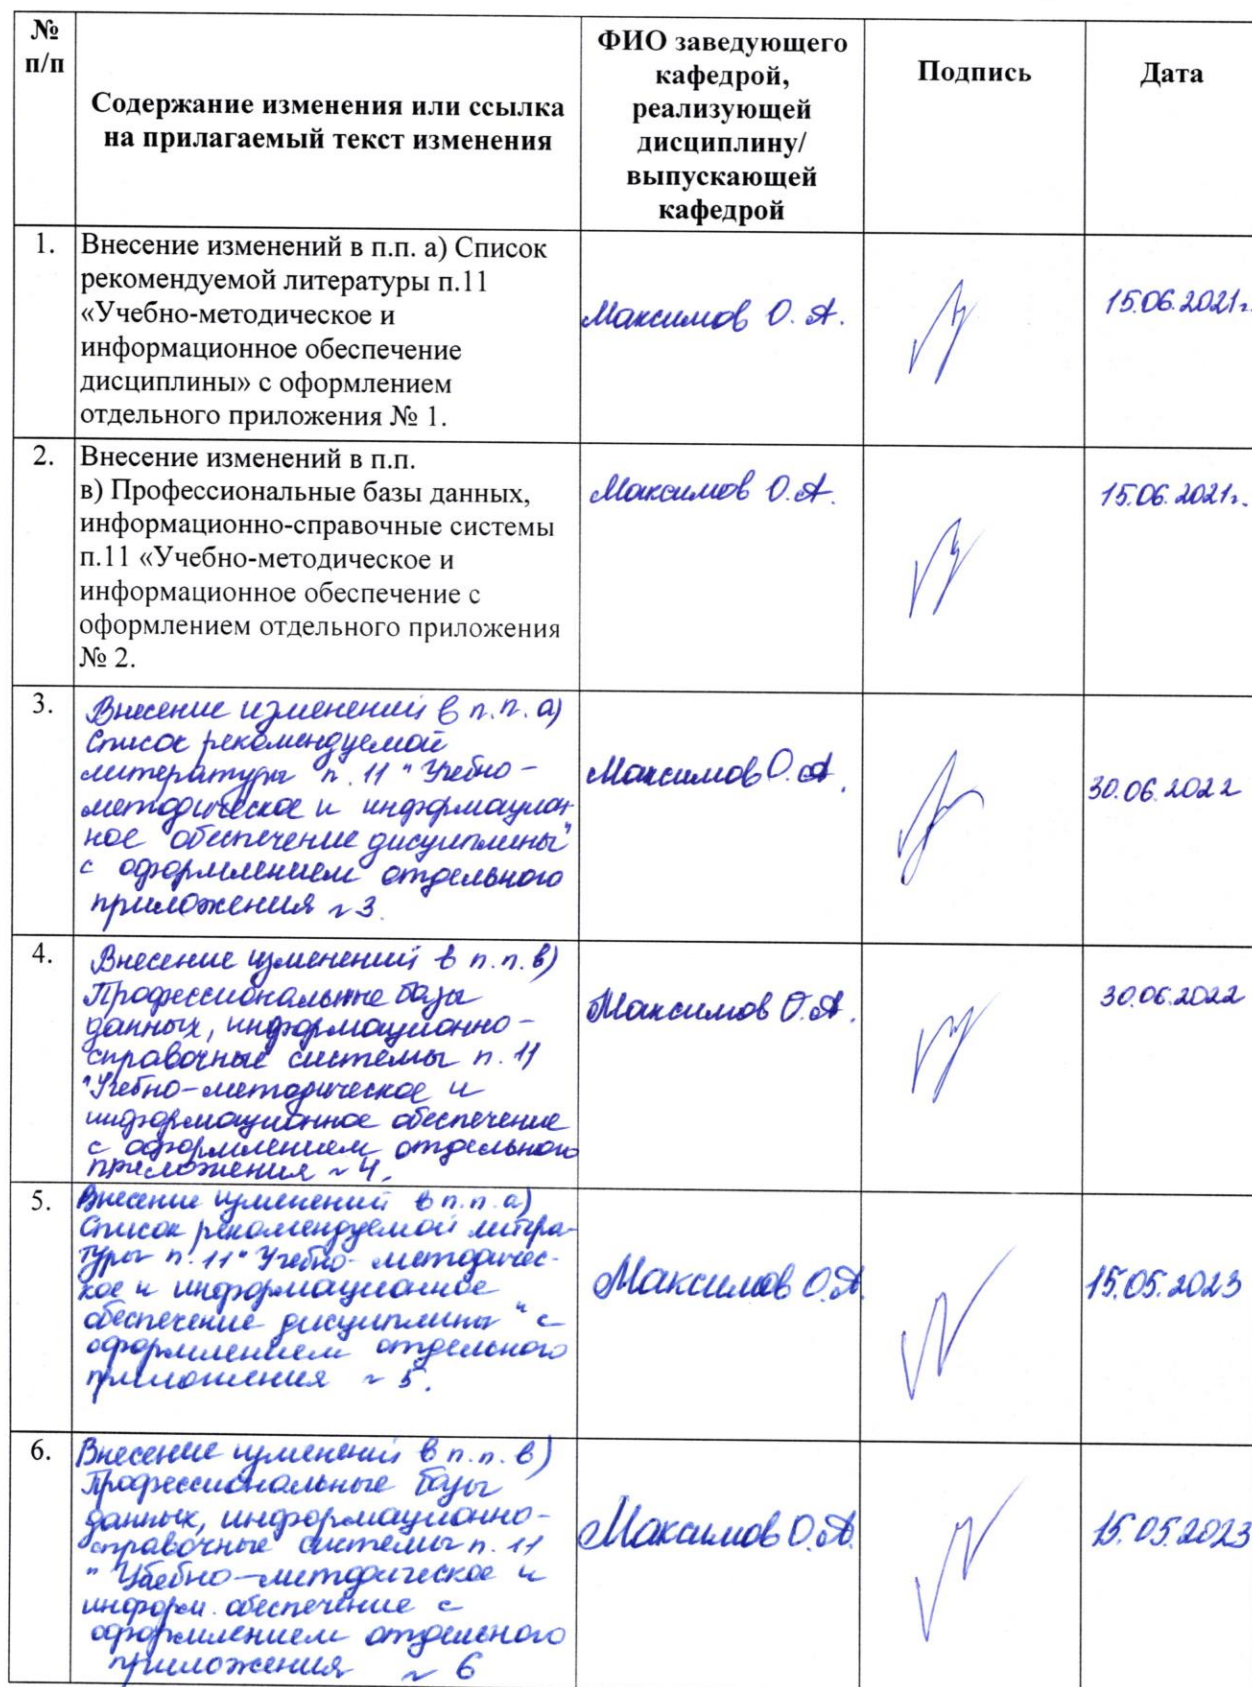 №
п/п
Содержание изменения или ссылка
на прилагаемый текст изменения
ФИО заведующего
кафедрой,
реализующей
дисциплину/
выпускающей
кафедрой
Подпись
Дата
1.
Внесение изменений в п.п. а) Список
рекомендуемой литературы п.11
«Учебно-методическое и
информационное обеспечение
дисциплины» с оформлением
отдельного приложения № 1.
Максимов О. А.
15.06.2021г.
2.
Внесение изменений в п.п.
в) Профессиональные базы данных,
информационно-справочные системы
п.11 «Учебно-методическое и
информационное обеспечение с
оформлением отдельного приложения
№ 2.
Максимов О.А.
15.06.2021г.
3.
Внесение изменений в п.п. а)
Список рекомендуемой
литературы п. 11 "Учебно-
методическое и информацион-
ное обеспечение дисциплины"
с оформлением отдельного
приложения № 3.
Максимов О.А.
30.06.2022
4.
Внесение изменений в п.п. в)
Профессиональные базы
данных, информационно-
справочные системы п. 11
"Учебно-методическое и
информационное обеспечение
с оформлением отдельного
приложения № 4.
Максимов О.А.
30.06.2022
5.
Внесение изменений в п.п. а)
Список рекомендуемой литера-
туры п. 11 "Учебно-методичес-
кое и информационное
обеспечение дисциплины" с
оформлением отдельного
приложения № 5.
Максимов О.А.
15.05.2023
6.
Внесение изменений в п.п. в)
Профессиональные базы
данных, информационно-
справочные системы п. 11
"Учебно-методическое и
информ. обеспечение с
оформлением отдельного
приложения № 6
Максимов О.А.
15.05.2023